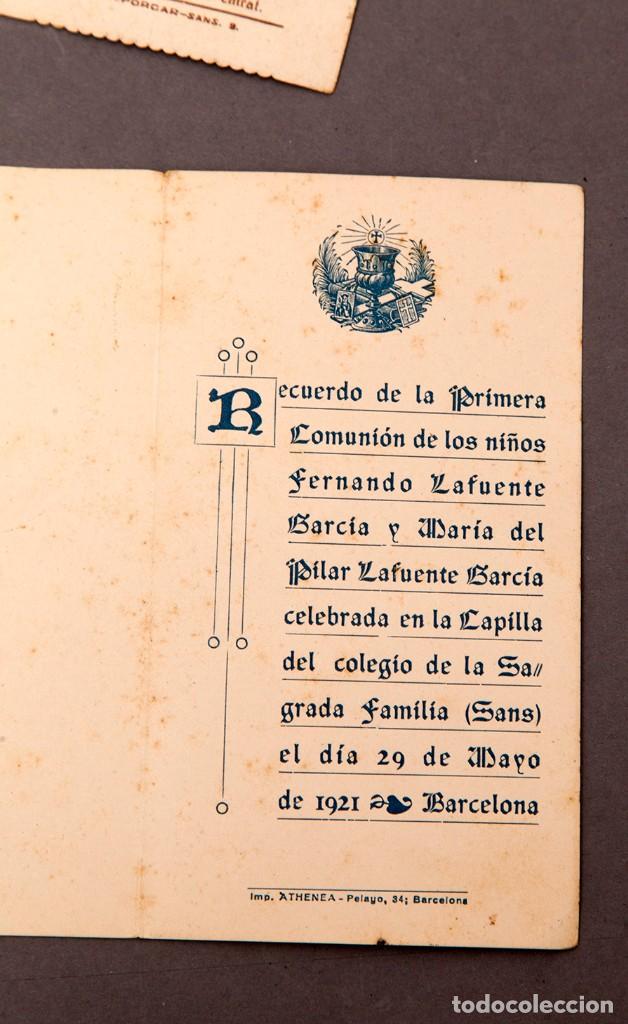 entral.
PORCAR-SANS. 2.
Recuerdo de la Primera
Comunión de los niños
Fernando Lafuente
García y María del
Pilar Lafuente García
celebrada en la Capilla
del colegio de la Sa=
grada Familia (Sans)
el día 29 de Mayo
de 1921 Barcelona
Imp. ATHENEA - Pelayo, 34; Barcelona
todocoleccion